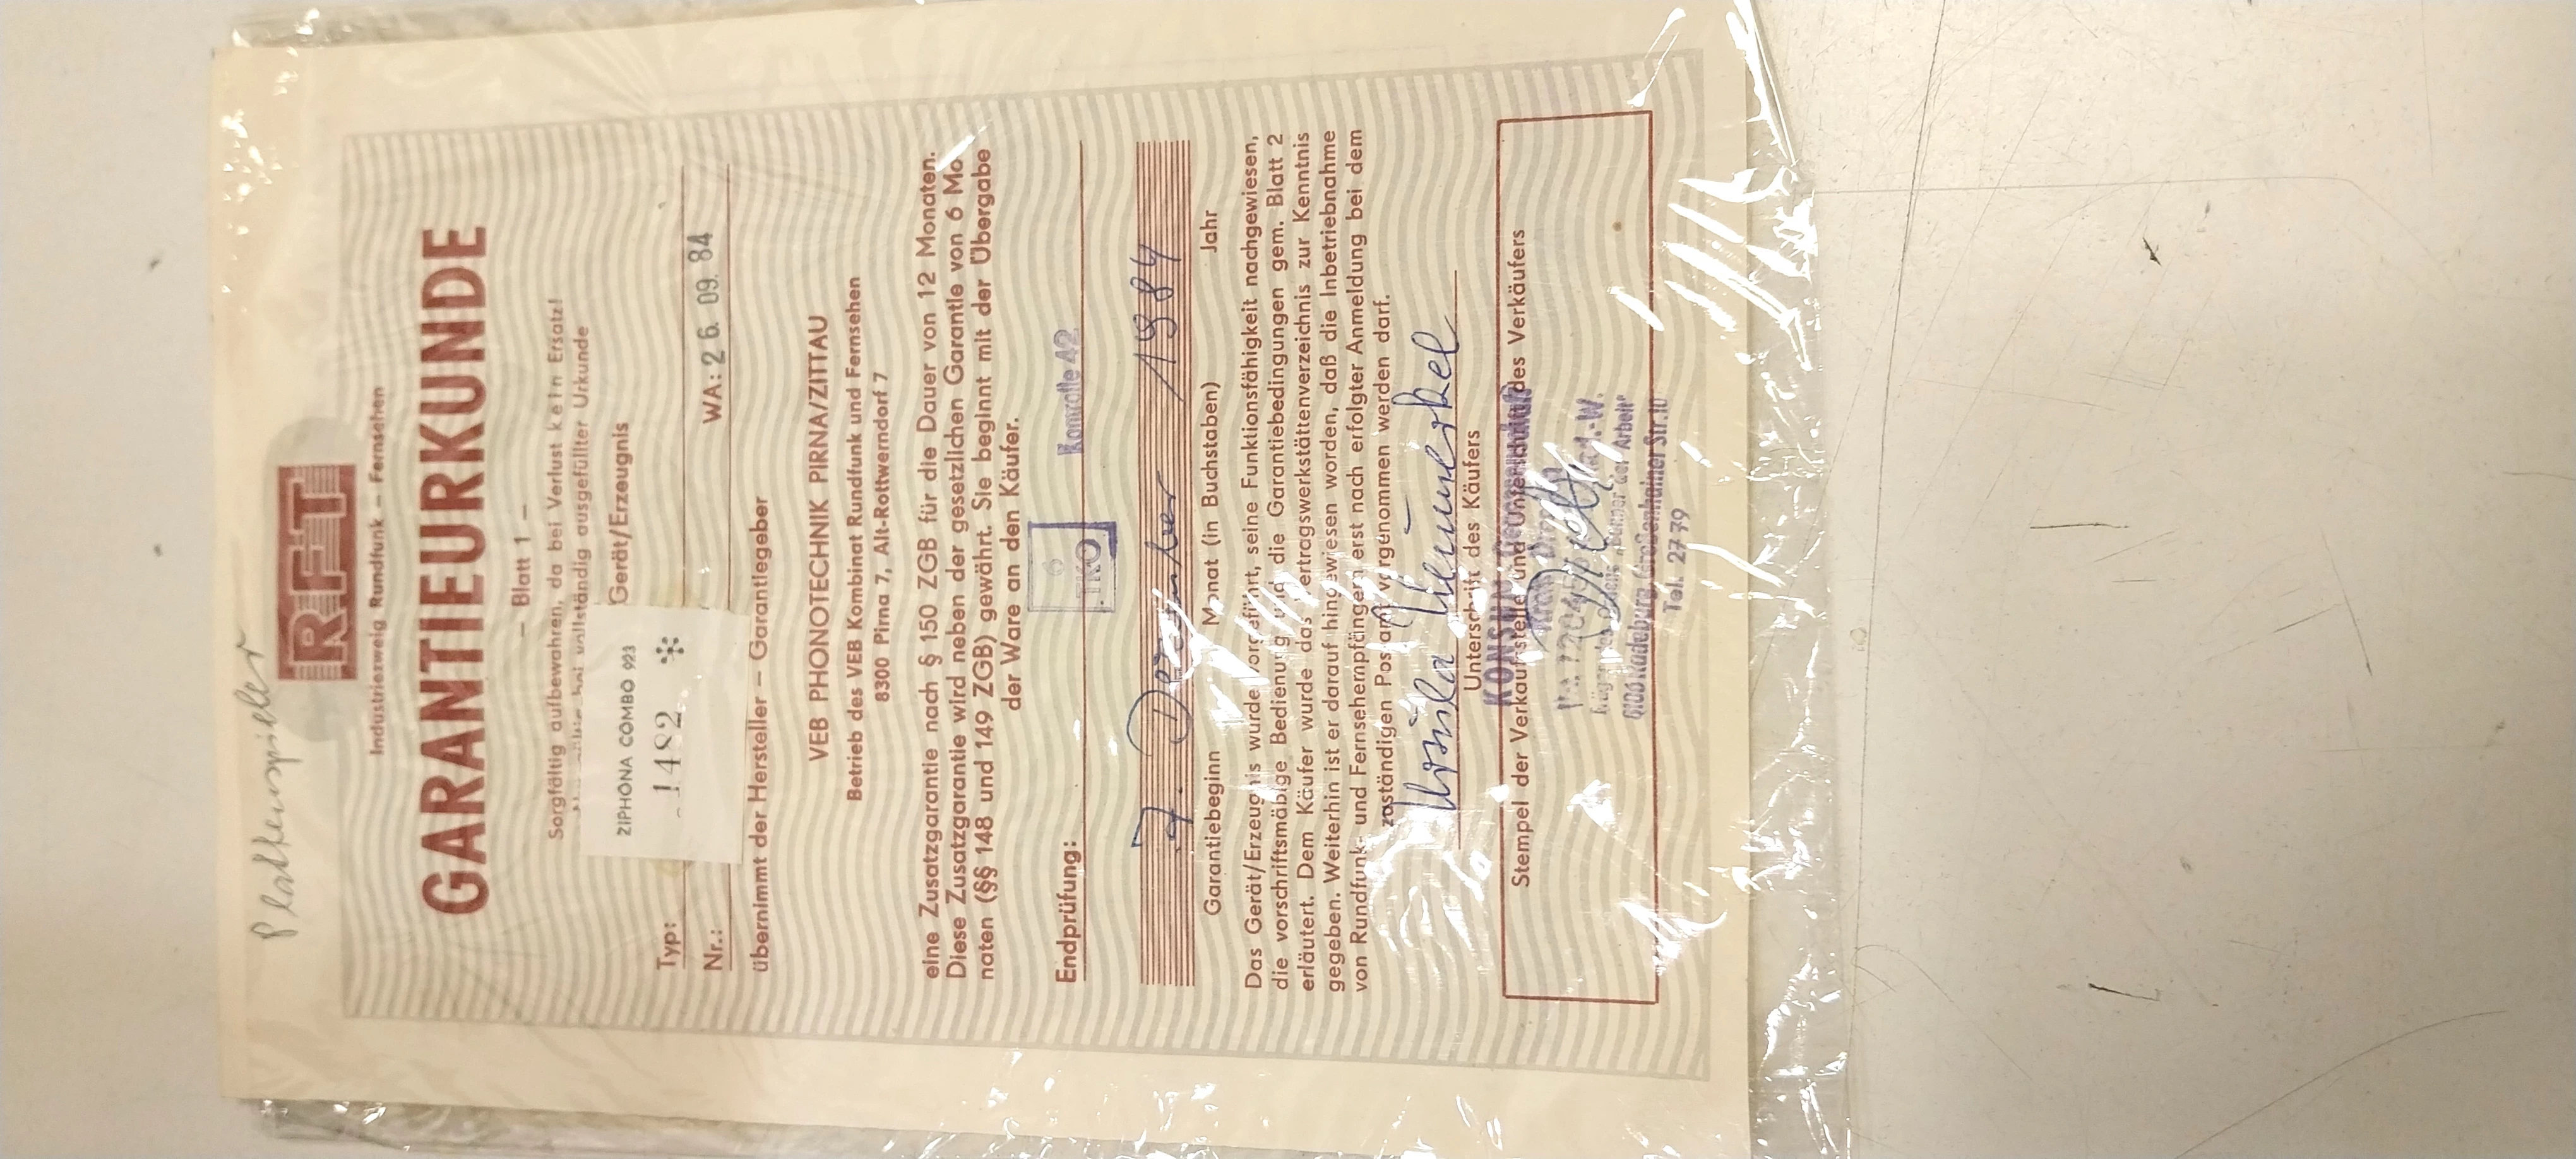 Plattenspieler
RFT
Industriezweig Rundfunk – Fernsehen
GARANTIEURKUNDE
– Blatt 1 –
Sorgfältig aufbewahren, da bei Verlust kein Ersatz!
bei vollständig ausgefüllter Urkunde
Gerät/Erzeugnis
ZIPHONA COMBO 923
Typ:
1482 *
Nr.:
WA: 26. 09. 84
übernimmt der Hersteller – Garantiegeber
VEB PHONOTECHNIK PIRNA/ZITTAU
Betrieb des VEB Kombinat Rundfunk und Fernsehen
8300 Pirna 7, Alt-Rottwerndorf 7
eine Zusatzgarantie nach § 150 ZGB für die Dauer von 12 Monaten.
Diese Zusatzgarantie wird neben der gesetzlichen Garantie von 6 Mo
naten (§§ 148 und 149 ZGB) gewährt. Sie beginnt mit der Übergabe
der Ware an den Käufer.
6
TKO
Endprüfung:
Kontrolle 42
7. Dezember 1984
Garantiebeginn Monat (in Buchstaben) Jahr
Das Gerät/Erzeugnis wurde vorgeführt, seine Funktionsfähigkeit nachgewiesen,
die vorschriftsmäßige Bedienung und die Garantiebedingungen gem. Blatt 2
erläutert. Dem Käufer wurde das Vertragswerkstättenverzeichnis zur Kenntnis
gegeben. Weiterhin ist er darauf hingewiesen worden, daß die Inbetriebnahme
von Rundfunk- und Fernsehempfängern erst nach erfolgter Anmeldung bei dem
zuständigen Postamt vorgenommen werden darf.
Unterschrift des Käufers
KONSUM
Stempel der Verkaufsstelle und Unterschrift des Verkäufers
der Arbeit"
Radeburg, Großenhainer Str. 10
Tel. 27 79